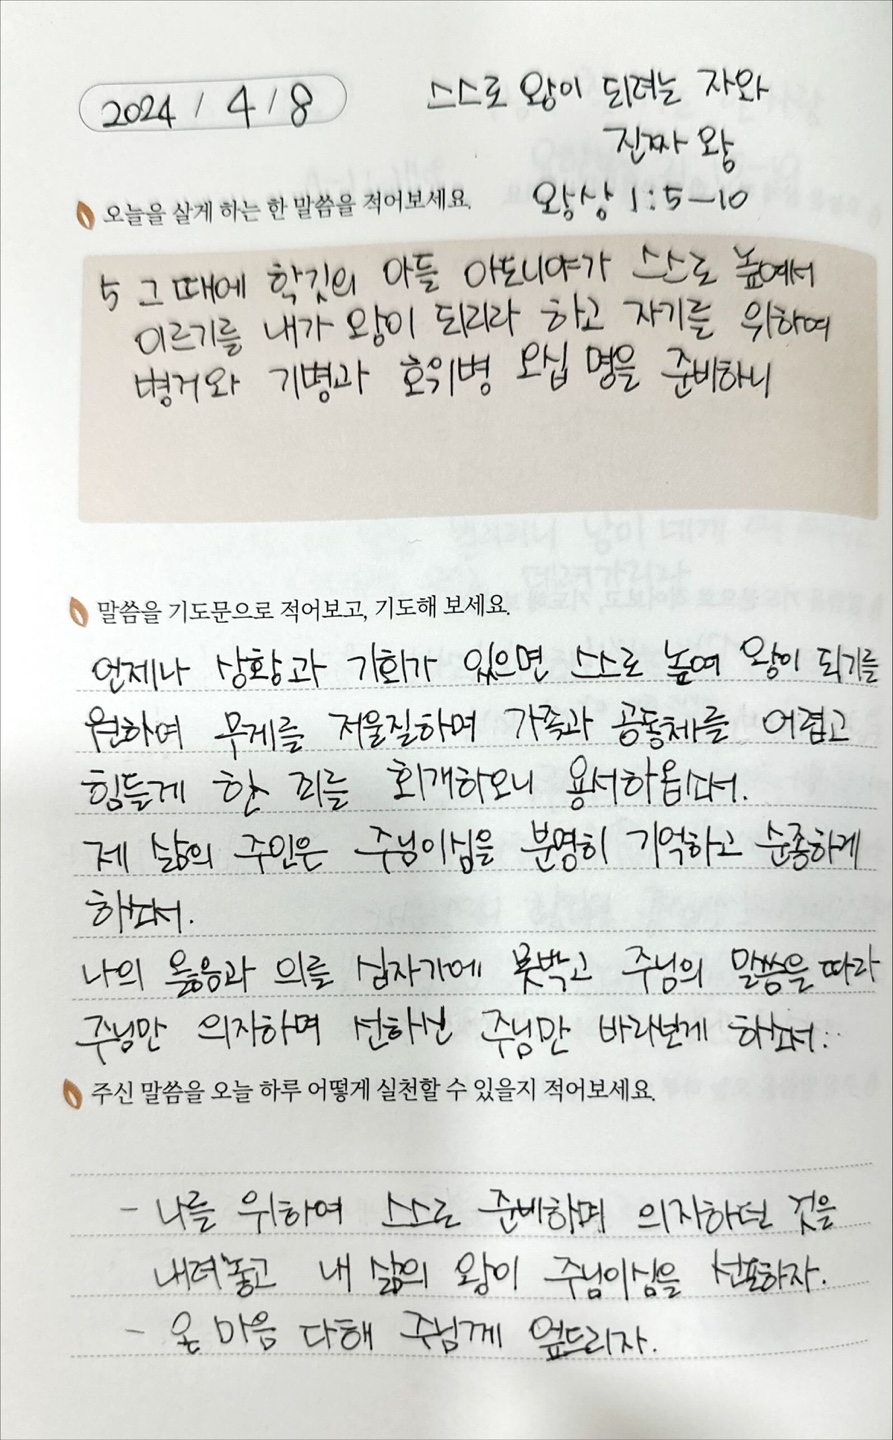 2024 / 4 / 8
스스로 왕이 되려는 자와
진짜 왕
왕상 1:5-10
오늘을 살게 하는 한 말씀을 적어보세요.
5 그 때에 학깃의 아들 아도니야가 스스로 높여서
이르기를 내가 왕이 되리라 하고 자기를 위하여
병거와 기병과 호위병 오십 명을 준비하니
말씀을 기도문으로 적어보고, 기도해 보세요.
언제나 상황과 기회가 있으면 스스로 높여 왕이 되기를
원하여 무게를 저울질하며 가족과 공동체를 어렵고
힘들게 한 죄를 회개하오니 용서하옵소서.
제 삶의 주인은 주님이심을 분명히 기억하고 순종하게
하소서.
나의 옳음과 의를 십자가에 못박고 주님의 말씀을 따라
주님만 의지하며 선하신 주님만 바라보게 하소서..
주신 말씀을 오늘 하루 어떻게 실천할 수 있을지 적어보세요.
- 나를 위하여 스스로 준비하며 의지하던 것을
내려놓고 내 삶의 왕이 주님이심을 선포하자.
- 온 마음 다해 주님께 엎드리자.